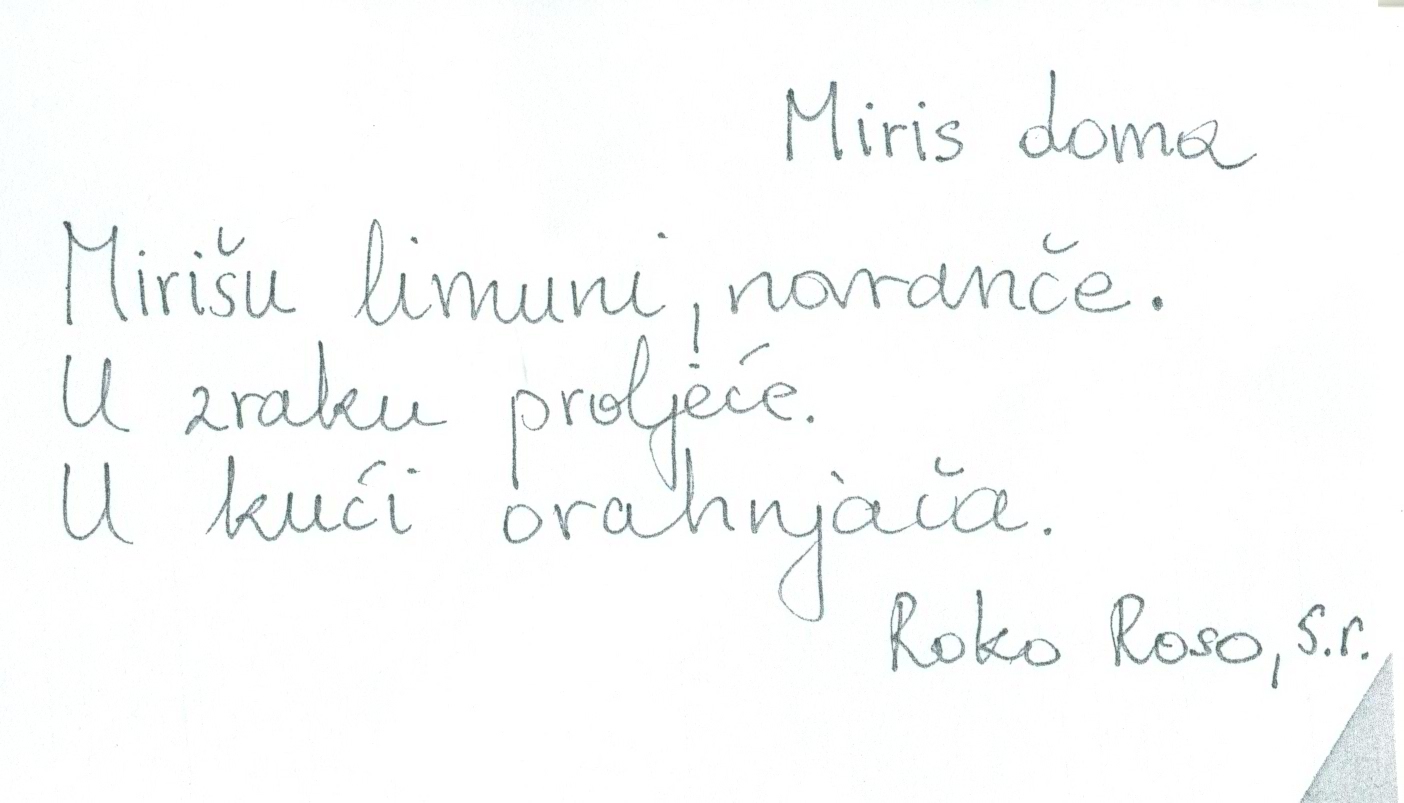 Miris doma
Mirišu limuni, naranče.
U zraku proljeće.
U kući orahnjača.
Roko Roso, s.r.